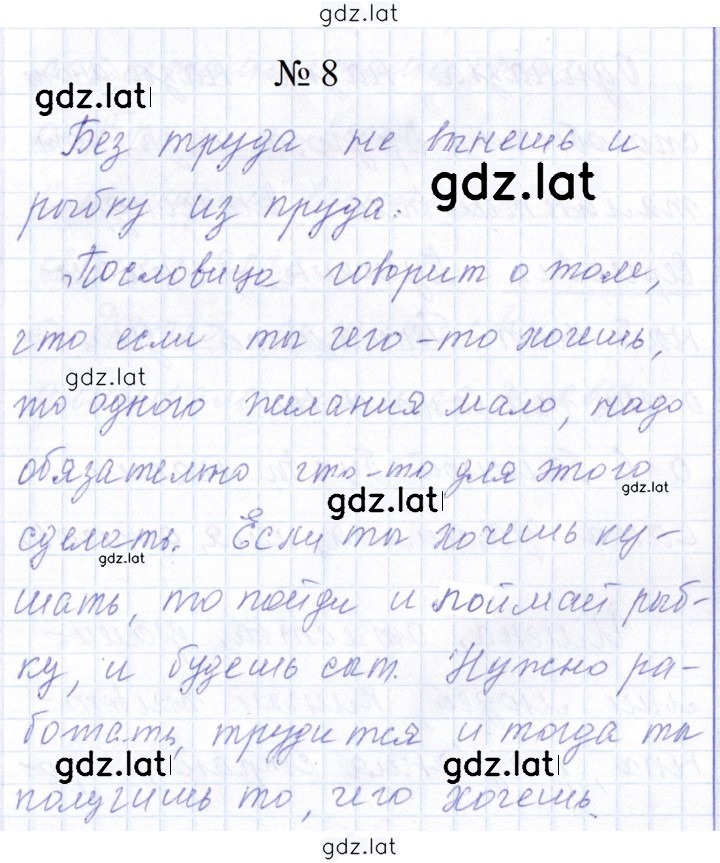 gdz.lat
№ 8
gdz.lat
Без труда не вынешь и
gdz.lat
рыбку из пруда.
Пословица говорит о том,
что если ты чего-то хочешь,
gdz.lat
то одного желания мало, надо
обязательно что-то для этого
gdz.lat
gdz.lat
сделать. Если ты хочешь ку-
gdz.lat
шать, то пойди и поймай рыб-
ку, и будешь сыт. Нужно ра-
ботать, трудится и тогда ты
gdz.lat gdz.lat
получишь то, чего хочешь.
gdz.lat